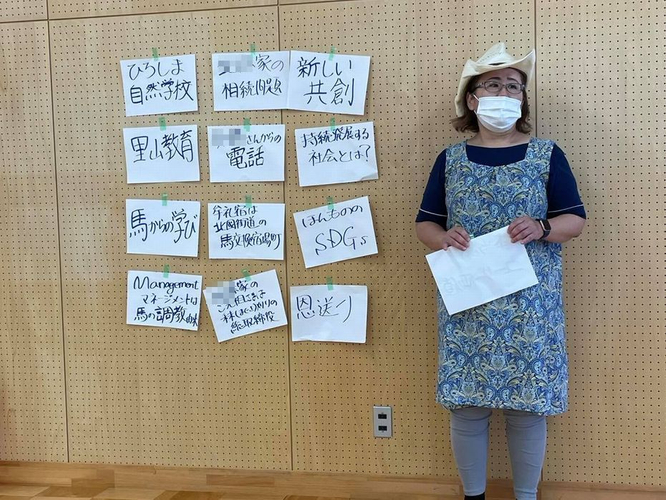 ひろしま
自然学校
家の
相続問題
新しい
共創
里山教育
さんからの
電話
持続発展する
社会とは?
馬からの学び
牟礼宿は
北国街道の
馬交換宿場町
ほんものの
SDGs
Management
マネージメントは
馬の調教由来
家の
総取締役
恩送り